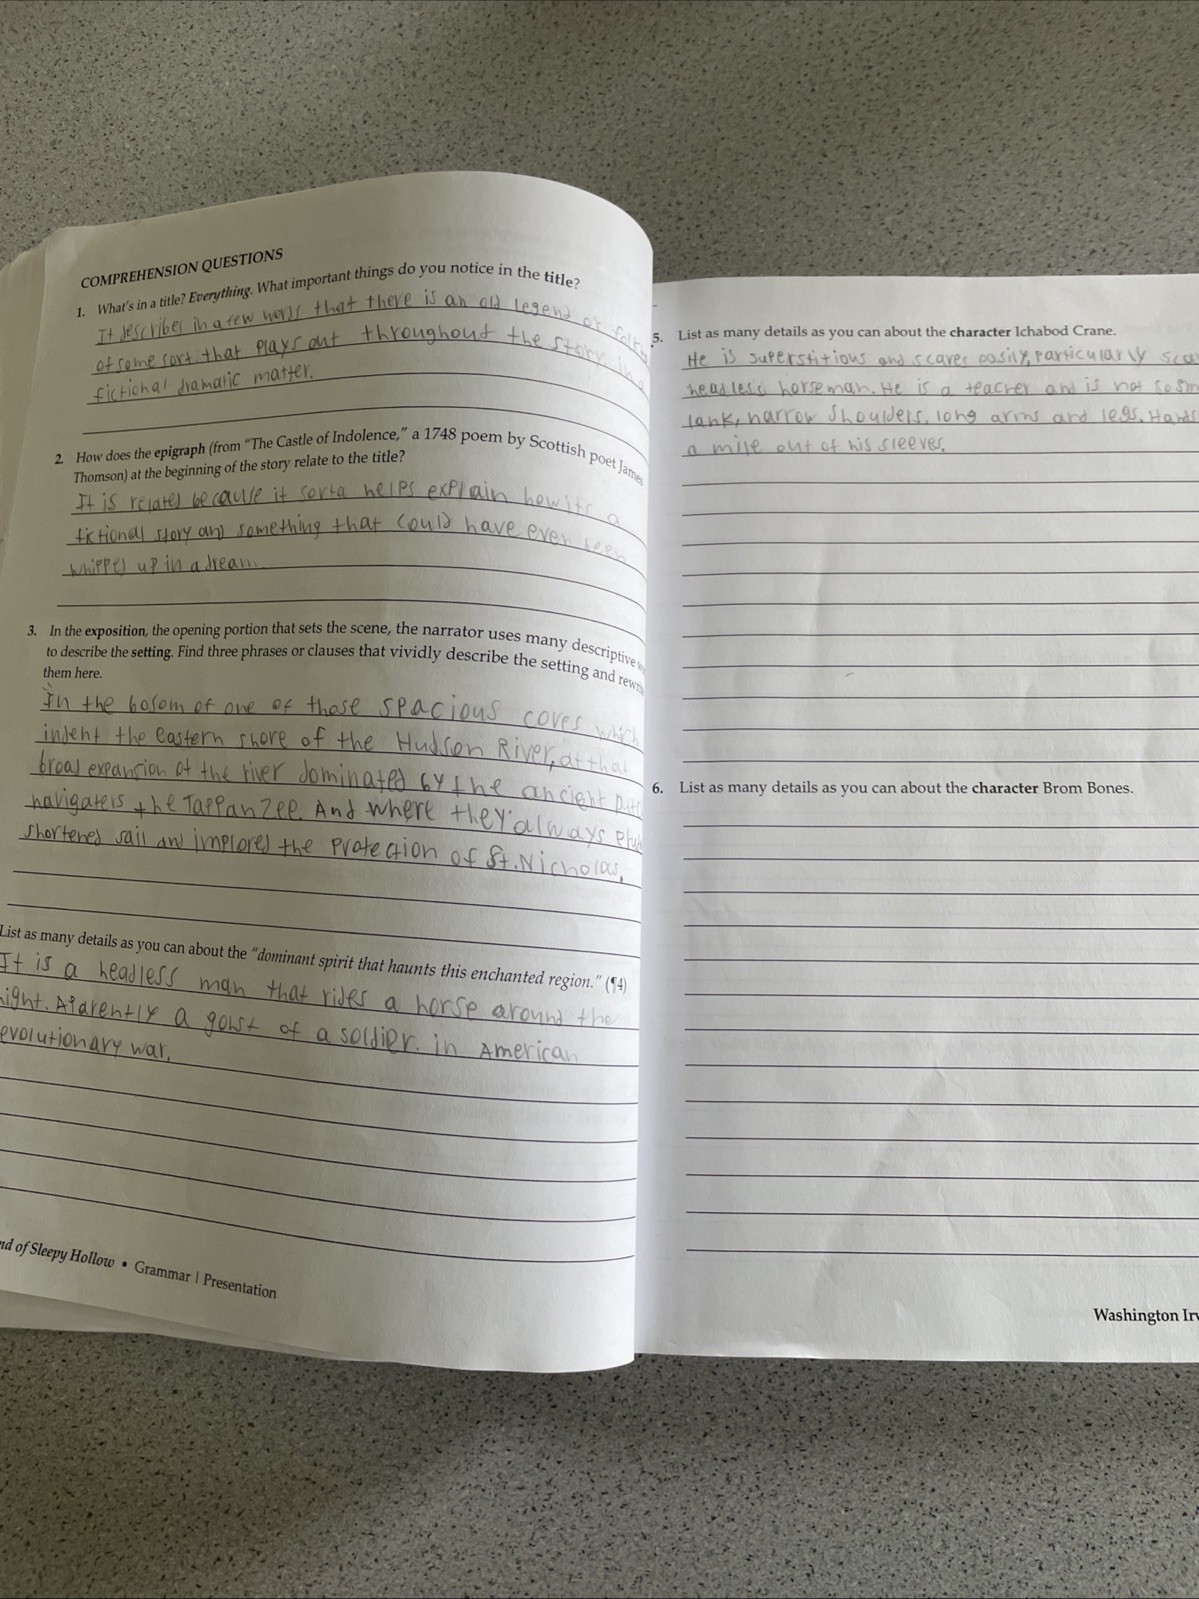 COMPREHENSION QUESTIONS
1. What's in a title? Everything. What important things do you notice in the title?
It describes in a few words that there is an old legend or
of some sort that plays out throughout the story in a
fictional dramatic matter.
2. How does the epigraph (from "The Castle of Indolence," a 1748 poem by Scottish poet James
Thomson) at the beginning of the story relate to the title?
It is related because it sorta helps explain how its a
fictional story and something that could have even been
whipped up in a dream
3. In the exposition, the opening portion that sets the scene, the narrator uses many descriptive
to describe the setting. Find three phrases or clauses that vividly describe the setting and
them here.
In the bosom of one of those spacious coves which
indent the eastern shore of the Hudson River, at that
broad expansion of the river dominated by the ancient
navigaters the Tappan Zee. And where they always
shortened sail and implored the protection of St. Nicholas.
List as many details as you can about the "dominant spirit that haunts this enchanted region." (¶4)
It is a headless man that rides a horse around the
night. Aparently a gohst of a soldier. in American
evolutionary war.
nd of Sleepy Hollow • Grammar | Presentation
5. List as many details as you can about the character Ichabod Crane.
He is superstitious and scares easily, particularly
headless horseman. He is a teacher and is not
lank, narrow shoulders, long arms and legs. Hands
a mile out of his sleeves.
6. List as many details as you can about the character Brom Bones.
Washington Irv